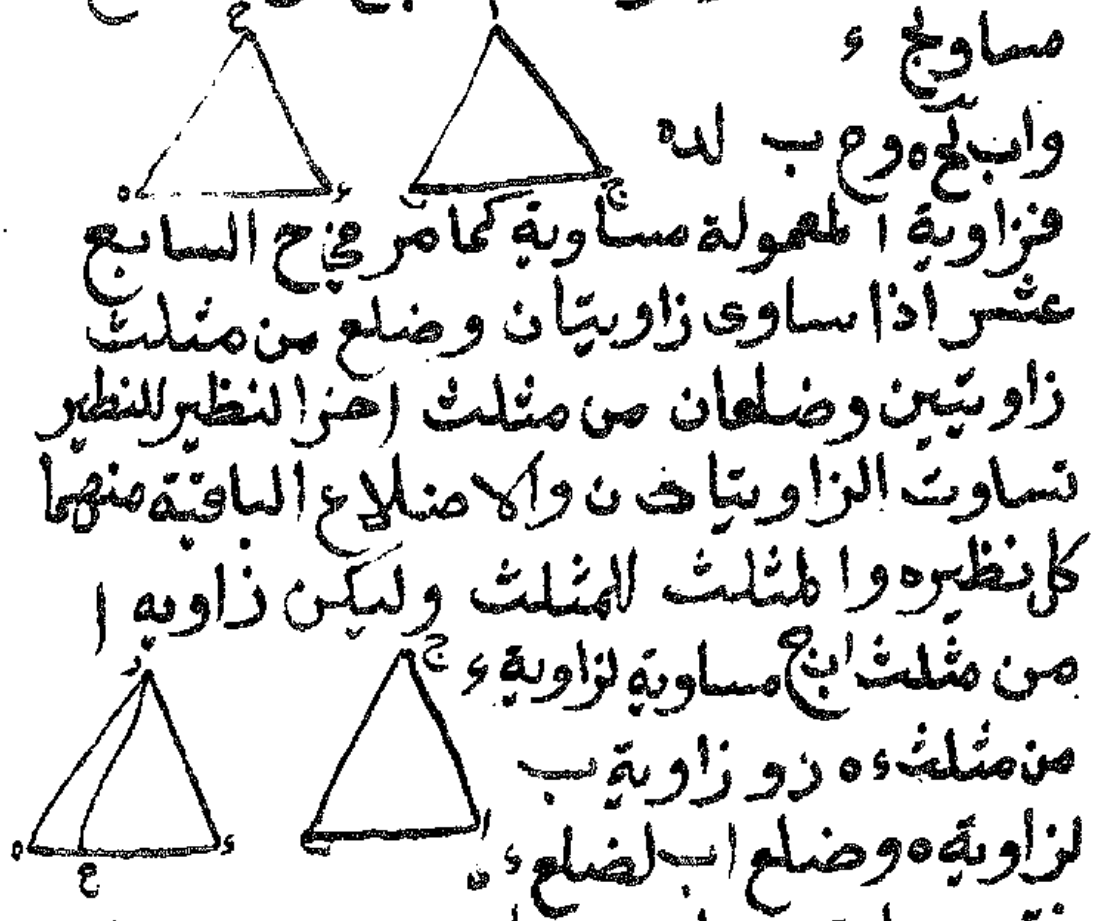 مساو لج ء
واب لح ه و ج ب لده
فزاوية ا المعمولة مساوية كما مر في ح السابع
عشر اذا ساوى زاويتان وضلع من مثلث
زاويتين وضلعان من مثلث اخر النظير للنظير
تساوت الزاويتان والاضلاع الباقية منهما
كل نظيره والمثلث للمثلث وليكن زاويه ا
من مثلث ابج مساوية لزاوية ء
من مثلث ء ه ز و زاوية ب
لزاوية ه وضلع اب لضلع ء ه